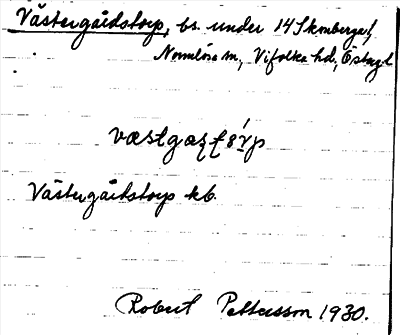 Västergårdstorp, bs. under 14 Skmberga,
Normlösa sn, Vifolka hd, Östergl
Västergårdstorp kb.
Robert Pettersson 1930.